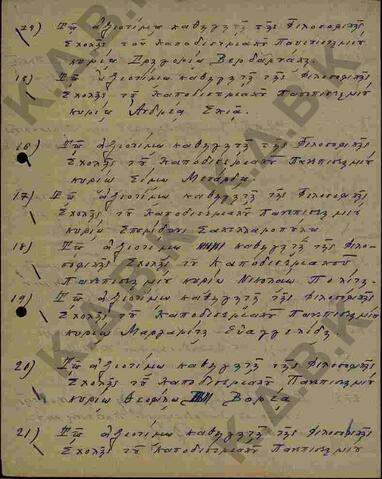 14) Τῷ ἀξιοτίμῳ καθηγητῇ τῆς Φιλοσοφικῆς
Σχολῆς τοῦ Καποδιστριακοῦ Πανεπιστημίου
κυρίῳ Γρηγορίῳ Βερναρδάκῃ.
15) Τῷ ἀξιοτίμῳ καθηγητῇ τῆς Φιλοσοφικῆς
Σχολῆς τοῦ Καποδιστριακοῦ Πανεπιστημίου
κυρίῳ Ἀνδρέᾳ Σκιᾷ.
16) Τῷ ἀξιοτίμῳ καθηγητῇ τῆς Φιλοσοφικῆς
Σχολῆς τοῦ Καποδιστριακοῦ Πανεπιστημίου
κυρίῳ Σίμῳ Μενάρδῳ.
17) Τῷ ἀξιοτίμῳ καθηγητῇ τῆς Φιλοσοφικῆς
Σχολῆς τοῦ Καποδιστριακοῦ Πανεπιστημίου
κυρίῳ Σπυρίδωνι Σακελλαροπούλῳ
18) Τῷ ἀξιοτίμῳ καθηγητῇ τῆς Φιλο-
σοφικῆς Σχολῆς τοῦ Καποδιστριακοῦ
Πανεπιστημίου κυρίῳ Νικολάῳ Πολίτῃ.
19) Τῷ ἀξιοτίμῳ καθηγητῇ τῆς Φιλοσοφικῆς
Σχολῆς τοῦ Καποδιστριακοῦ Πανεπιστημίου
κυρίῳ Μαργαρίτῃ Εὐαγγελίδῃ
20) Τῷ ἀξιοτίμῳ καθηγητῇ τῆς Φιλοσοφικῆς
Σχολῆς τοῦ Καποδιστριακοῦ Πανεπιστημίου
κυρίῳ Θεοφίλῳ Βορέᾳ
21) Τῷ ἀξιοτίμῳ καθηγητῇ τῆς Φιλοσοφικῆς
Σχολῆς τοῦ Καποδιστριακοῦ Πανεπιστημίου